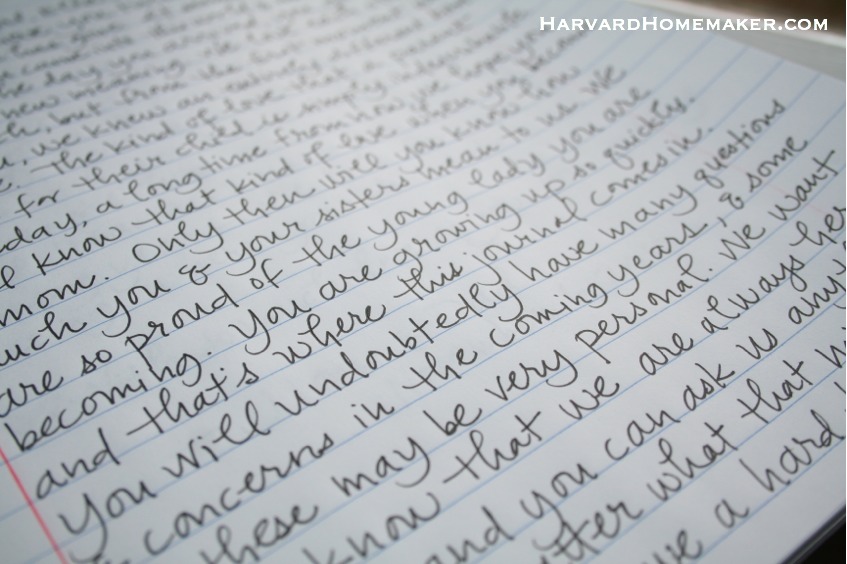 HARVARDHOMEMAKER.COM
the day you
new meaning
but from the
we knew an entirely
The kind of love that a parent
for their child is simply
day, a long time from now, we hope you
know that kind of love when you become
mom. Only then will you know how
uch you & your sisters mean to us. We
are so proud of the young lady you are
becoming. You are growing up so quickly.
and that's where this journal comes in.
You will undoubtedly have many questions
& concerns in the coming years, & some
these may be very personal. We want
know that we are always her
and you can ask us any
tter what that
ve a hard